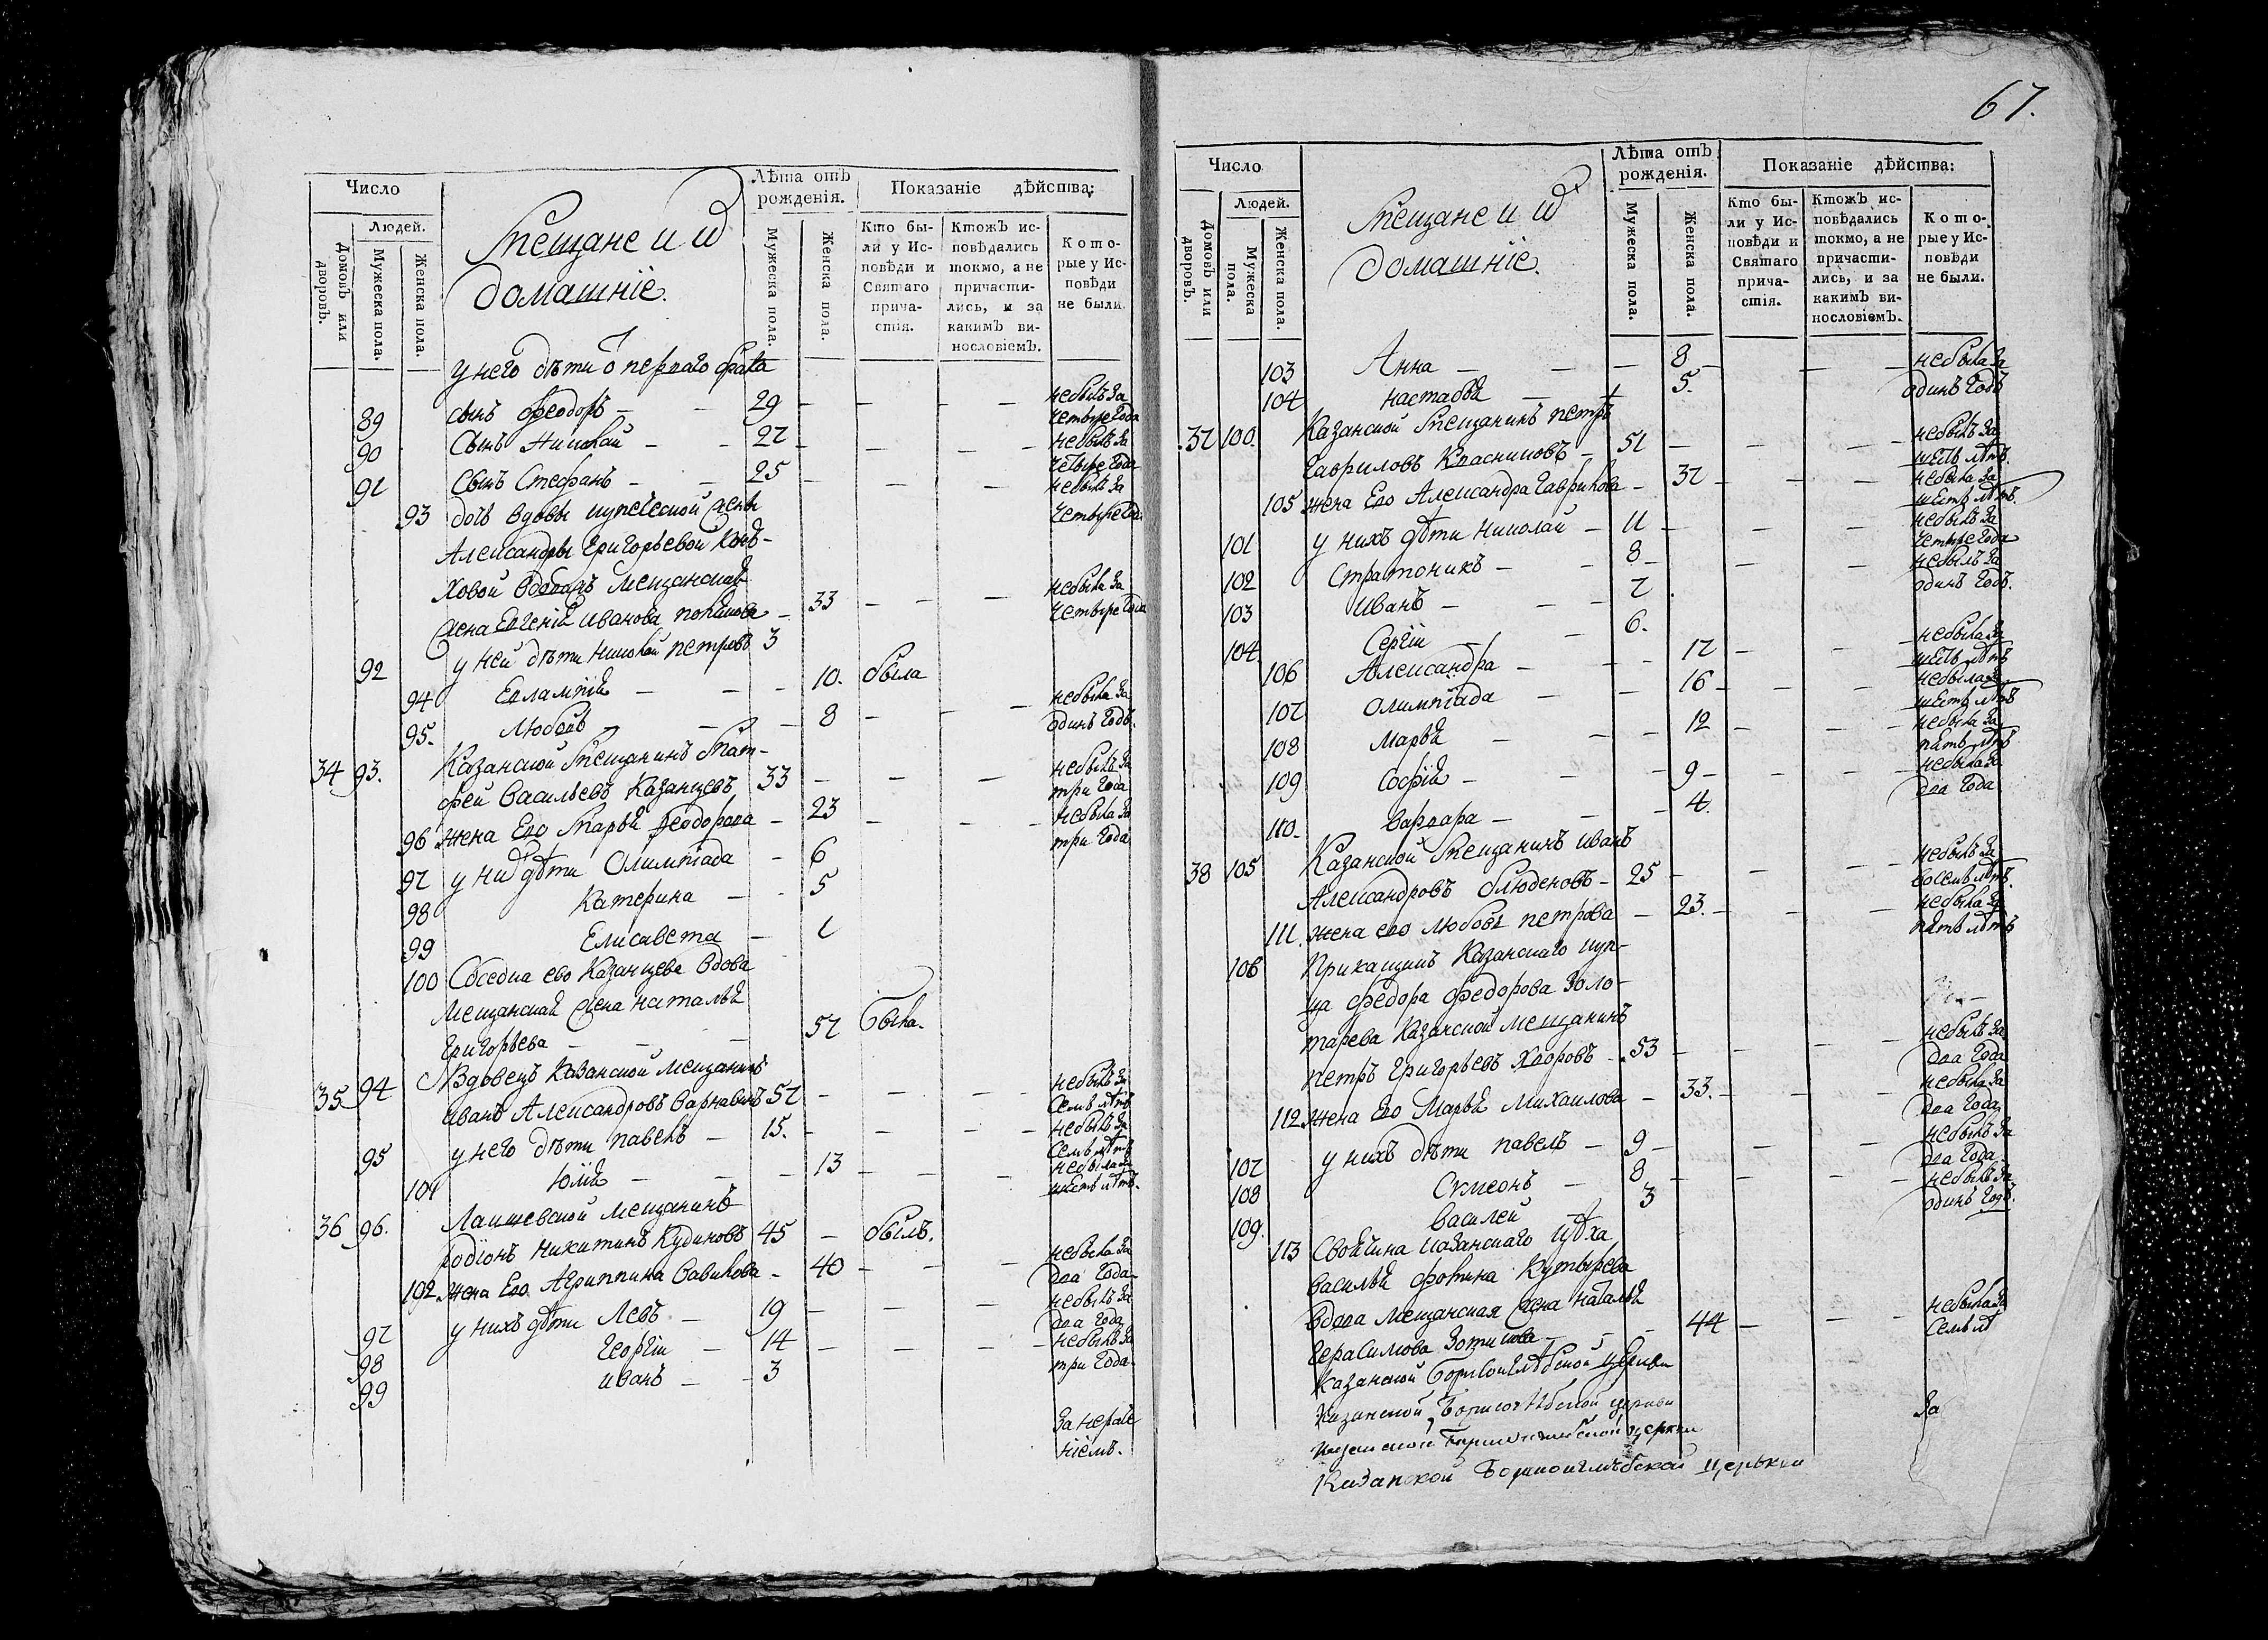 Число
Людей.
Домовъ или дворовъ.
Мужеска пола.
Женска пола.
Мещане и и
домашніе.
Лѣта отъ рожденія.
Мужеска пола.
Женска пола.
Показаніе дѣйства:
Кто были у Исповѣди и Святаго причастія.
Ктожъ исповѣдались токмо, а не причастились, и за какимъ винословіемъ.
Которые у Исповѣди не были
у него дѣти ѿ перваго брака
89 сынъ Ѳеодоръ — 29 — — — небылъ за четыре года
90 Сынъ Николай — 27 — — — небылъ за четыре года
91 Сынъ Стефанъ — 25 — — — небылъ за четыре года
93 дочь вдовы купеческой жены
Александры Григорьевой
вдова мещанская
жена Евгенія Иванова — 33 — — — небыла за четыре года
92 у ней дѣти Николай Петровъ 3
94 Евлампія — 10. была
95. Любовь — 8 — — небыла за одинъ годъ.
34 93. Казанской Мещанинъ Мат-
фей Васильевъ Казанцевъ 33 — — — небылъ за три года
96 жена Его Марья Ѳеодорова — 23 — — — небыла за три года
97 у них дѣти Олимпіада — 6
98 Катерина — 5
99 Елисавета — 1
100 Соседка ево Казанцева вдова
мещанская жена Наталья
Григорьева — 57 была.
35 94 Вдовецъ Казанской мещанинъ
Иванъ Александровъ 57 — — — небылъ за семь лѣтъ
95 у него дѣти Павелъ — 15. — — — небылъ за семь лѣтъ
101 Юлія — 13 — — — небыла за шесть лѣтъ.
36 96. Лаишевской мещанинъ
Родіонъ Никитинъ Кудиновъ 45 — былъ.
102 жена Его Агриппина Савинова — 40 — — — небыла за два года
97 у нихъ дѣти Левъ — 19 — — — небылъ за два года
98 Георгій — 14 — — — небылъ за три года.
99 Иванъ — 3
за нераде
ніемъ.
67.
Число
Людей.
Домовъ или дворовъ.
Мужеска пола.
Женска пола.
Мещане и и
домашніе.
Лѣта отъ рожденія.
Мужеска пола.
Женска пола.
Показаніе дѣйства:
Кто были у Исповѣди и Святаго причастія.
Ктожъ исповѣдались токмо, а не причастились, и за какимъ винословіемъ.
Которые у Исповѣди не были.
103 Анна — 8 — — — небыла за одинъ годъ
104 Настасья — 5.
37 100. Казанской Мещанинъ Петръ
Гавриловъ Красниковъ — 51 — — — небылъ за шесть лѣтъ.
105 жена Его Александра Гаврилова — 37 — — — небыла за шесть лѣтъ
101 у нихъ дѣти Николай — 11 — — — небылъ за четыре года
102 Стратоникъ — 8 — — — небылъ за одинъ годъ.
103 Иванъ — 7
104 Сергій — 6.
106 Александра — 17 — — — небыла за шесть лѣтъ
107 Олимпіада — 16 — — — небыла за шесть лѣтъ
108 Марья — 12 — — — небыла за пять лѣтъ
109 Софія — 9 — — — небыла за два года
110. Варвара — 4.
38 105 Казанской Мещанинъ Иванъ
Александровъ Блюденовъ — 25 — — — небылъ за восемь лѣтъ.
111. жена его Любовь Петрова — 23. — — — небыла за пять лѣтъ
106 Прикащикъ Казанскаго куп-
ца Федора Федорова Золо-
тарева Казанской мещанинъ
Петръ Григорьевъ Хворовъ — 53 — — — небылъ за два года
112 жена Его Марья Михаилова — 33. — — — небыла за два года
107 у нихъ дѣти Павелъ — 9 — — — небылъ за два года
108 Симеонъ — 8 — — — небылъ за одинъ годъ.
109. Василей — 3
113 Своячина Казанскаго цѣха
Василья Фокина Кутырева
вдова мещанская жена Наталья
Герасимова — 44 — — — небыла за семь лѣ
Казанской Борисоглѣбской церкви
Казанской Борисоглѣбской церкви
Казанской Борисоглѣбской церкви
Казанской Борисоглѣбской церькви
За